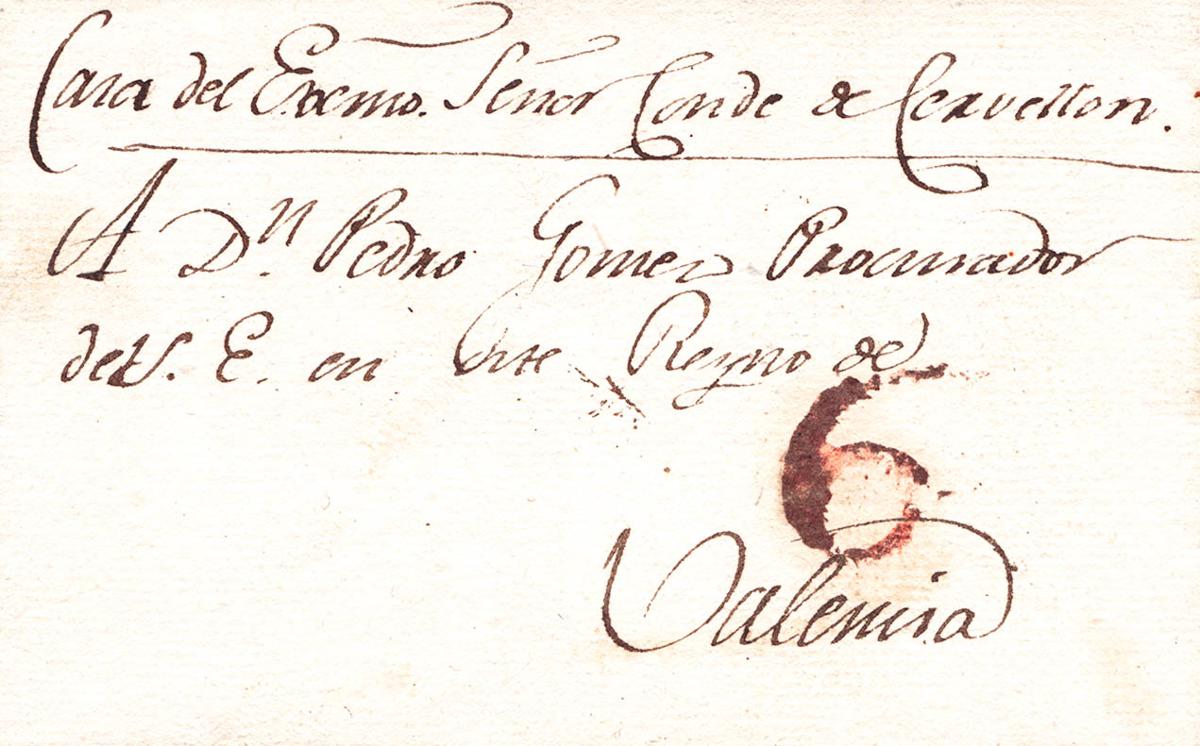 Casa del Exemo. Señor Conde de Cervellon.
A Dn. Pedro Gomez Procurador
de S. E. en este Reyno de
6
Valencia